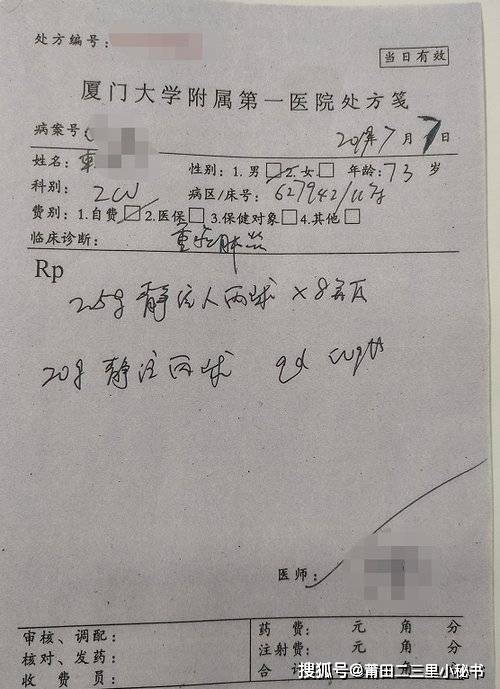 处方编号:
当日有效
厦门大学附属第一医院处方笺
病案号:
年7月7日
姓名: 性别: 1.男□2.女□ 年龄:73岁
科别: ICU 病区/床号: 627942/11床
费别: 1.自费□2.医保□3.保健对象□4.其他□
临床诊断: 重症肺炎
Rp
2.5g 静注人丙球 ×8瓶
20g 静注丙球 qd
医师:
审核、调配:
核对、发药:
收费员:
药费: 元 角 分
注射费: 元 角 分
合
搜狐号@莆田二三里小秘书